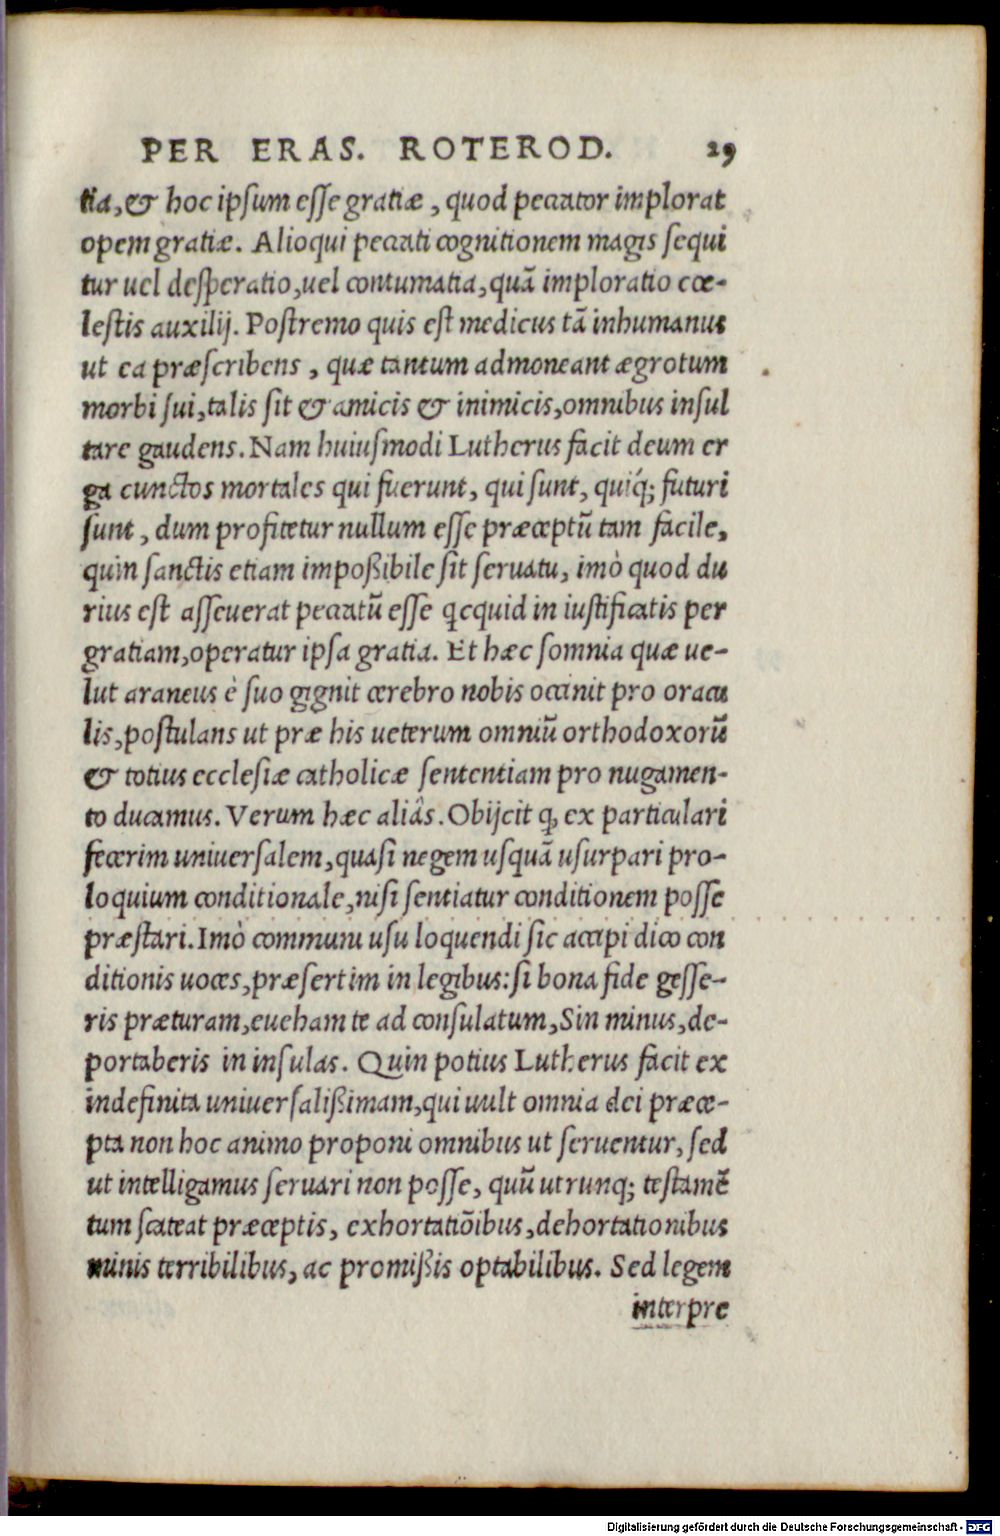 PER ERAS. ROTEROD. 29
tia, & hoc ipsum esse gratiæ, quod peccator implorat
opem gratiæ. Alioqui peccati cognitionem magis sequi
tur uel desperatio, uel contumatia, quā imploratio cœ-
lestis auxilij. Postremo quis est medicus tā inhumanus
ut ea præscribens, quæ tantum admoneant ægrotum
morbi sui, talis sit & amicis & inimicis, omnibus insul
tare gaudens. Nam huiusmodi Lutherus facit deum er
ga cunctos mortales qui fuerunt, qui sunt, quiq́; futuri
sunt, dum profitetur nullum esse præceptū tam facile,
quin sanctis etiam impoßibile sit seruatu, imò quod du
rius est asseuerat peccatū esse qcquid in iustificatis per
gratiam, operatur ipsa gratia. Et hæc somnia quæ ue-
lut araneus è suo gignit cerebro nobis occinit pro oracu
lis, postulans ut præ his ueterum omniū orthodoxorū
& totius ecclesiæ catholicæ sententiam pro nugamen-
to ducamus. Verum hæc aliâs. Obijcit q, ex particulari
fecerim uniuersalem, quasi negem usquā usurpari pro-
loquium conditionale, nisi sentiatur conditionem posse
præstari. Imò communi usu loquendi sic accipi dico con
ditionis uoces, præsertim in legibus: si bona fide gesse-
ris præturam, eueham te ad consulatum, Sin minus, de-
portaberis in insulas. Quin potius Lutherus facit ex
indefinita uniuersalißimam, qui uult omnia dei præce-
pta non hoc animo proponi omnibus ut seruentur, sed
ut intelligamus seruari non posse, quū utrunq; testamē
tum scateat præceptis, exhortatiōibus, dehortationibus
minis terribilibus, ac promißis optabilibus. Sed legem
interpre
Digitalisierung gefördert durch die Deutsche Forschungsgemeinschaft - DFG